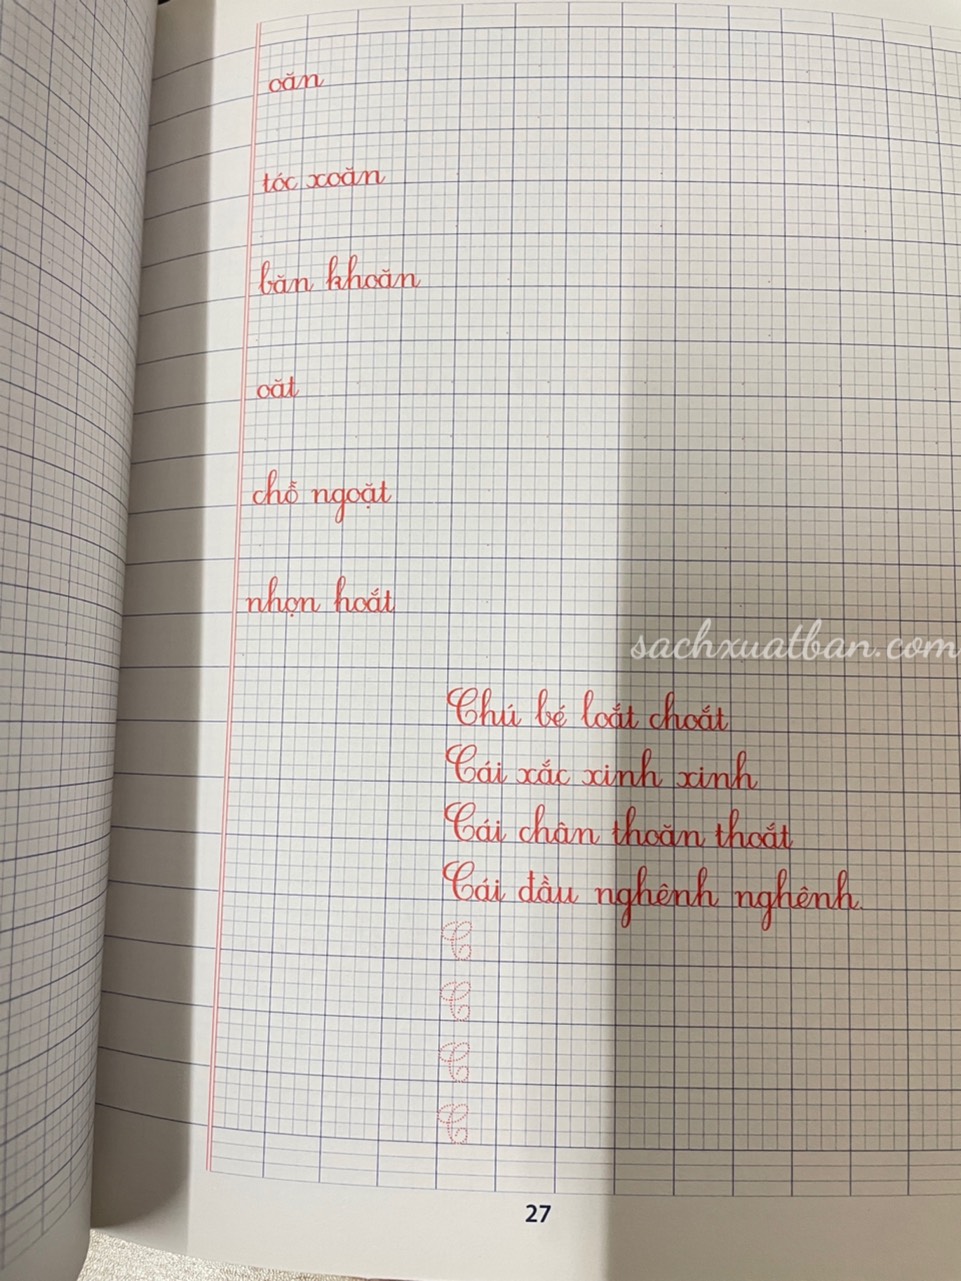 oăn
tóc xoăn
băn khoăn
oăt
chỗ ngoặt
nhọn hoắt
sachxuatban.com
Chú bé loắt choắt
Cái xắc xinh xinh
Cái chân thoăn thoắt
Cái đầu nghênh nghênh
C
C
C
C
27